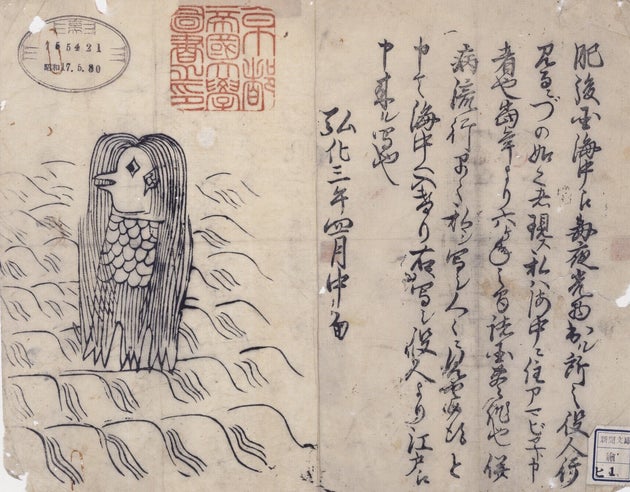 肥後国海中え毎夜光物出ル所之役人行
見るニづの如く者現ス私ハ海中ニ住アマビヱト申
者也当年より六ヶ年之間諸国豊作也併
病流行早々私シ写シ人々ニ見せ候得と
申て海中へ入けり右写シ役人より江戸え
申来ル写也
弘化三年四月中旬
京都
帝國大學
圖書之印
165421
昭和17.5.30
新聞文庫
繪
ヒ 1